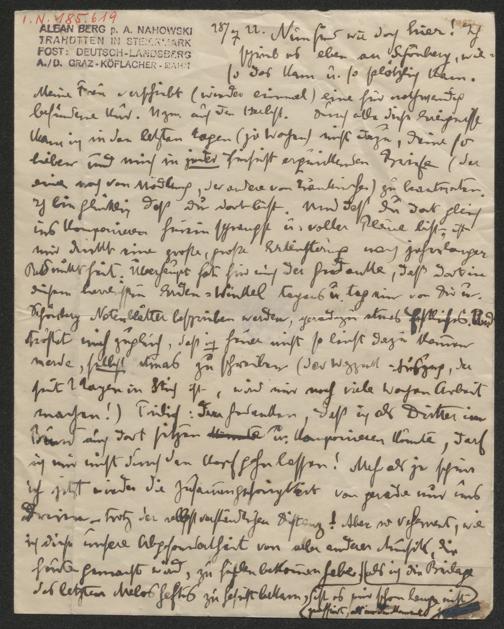 I.N. 185.619
ALBAN BERG p. A. NAHOWSKI
TRAHÜTTEN IN STEIERMARK
POST: DEUTSCH-LANDSBERG
A./D. GRAZ-KÖFLACHER-BAHN
Nun sind wir doch hier! Ich
schrieb es eben an Schönberg, wie
so das kam u. so plötzlich kam.
Meine Frau verschiebt (wieder einmal) eine für notwendig
befundene Kur. Nun auf den Herbst. Durch alle diese Ereignisse
kam ich in den letzten Tagen (ja Wochen) nicht dazu, Deine so
lieben und mich in jeder Hinsicht Briefe (der
eine noch von Mödling, der andere von Traunkirchen) zu beantworten.
Ich bin glücklich daß Du dort bist. Und daß Du dort gleich
ins Komponieren hineinspringst u. voller Pläne bist, ist
mir direkt eine große, große Erleichterung nach jahrelanger
Bedrücktheit. Überhaupt hat für mich der Gedanke, daß dort in
diesem Erden-Winkel tagaus u. tagein von Dir u.
Schönberg Notenblätter beschrieben werden, geradezu etwas Und
tröstet mich zugleich, daß ich heuer nicht so leicht dazu kommen
werde, selbst etwas zu schreiben (der Wozzek-Auszug, der
seit 2 Tagen in Stich ist, wird mir noch viele Wochen Arbeit
machen!) Freilich: dem Gedanken, daß ich als Dritter im
Bund auch dort sitzen u. komponieren könnte, darf
ich mir nicht durch den Kopf gehn lassen! Mehr als je schein
ich jetzt wieder die Zusammengehörigkeit von gerade nur uns
Dreien – trotz der selbstverständlichen Distanz! Aber so vehement, wie
ich diese unsere Absonderlichkeit von aller anderen Musik, die
heute gemacht wird, zu fühlen bekommen habe, als ich die Beilage
des letzten Melosheftes zu Gesicht bekam, ist es mir schon lange nicht
passiert,